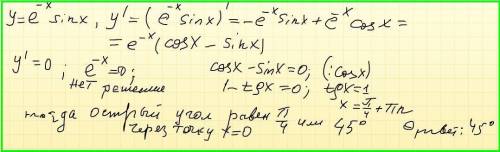 y=e⁻ˣ sinx, y'=(e⁻ˣ sinx)'=-e⁻ˣ sinx+e⁻ˣ cosx=
=e⁻ˣ(cosx-sinx)
y'=0; e⁻ˣ=0; cosx-sinx=0; (:cosx)
нет решение 1-tgx=0; tgx=1
x=π/4+πn
тогда острый угол равен π/4 или 45°
через точку x=0 Ответ: 45°